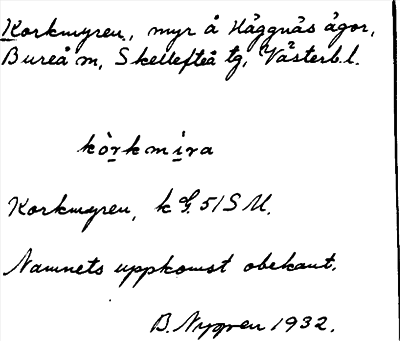 Korkmyren, myr å Häggnäs ägor,
Bureå m, Skellefteå tg, Västerb.l.
kòrkmira
Korkmyren, k G. 51 S M.
Namnets uppkomst obekant.
B. Nygren 1932.